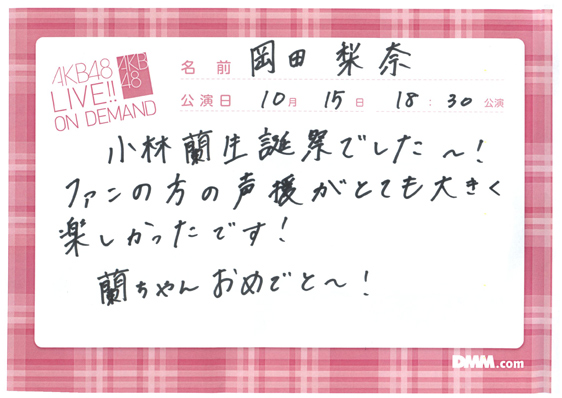 AKB48
LIVE!!
ON DEMAND
AKB
48
名前 岡田梨奈
公演日 10月 15日 18:30公演
小林蘭生誕祭でした〜!
ファンの方の声援がとても大きく
楽しかったです!
蘭ちゃんおめでと〜!
DMM.com